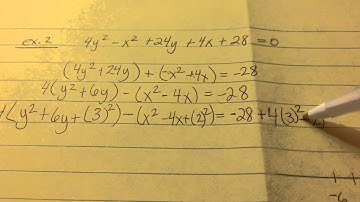 ex. 2 4y² - x² + 24y + 4x + 28 = 0
(4y² + 24y) + (-x² + 4x) = -28
4(y² + 6y) - (x² - 4x) = -28
4(y² + 6y + (3)²) - (x² - 4x + (2)²) = -28 + 4(3)²
1 1
-6